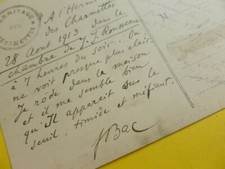 A l'Ermitage
des Charmettes
28 Aout 1913 dans la
chambre de J. J. Rousseau
à 7 heures du soir. On
ne voit presque plus clair.
Je rôde dans la maison
et il me semble bien
qu'il apparait sur le
seuil, timide et méfiant.
F Bac